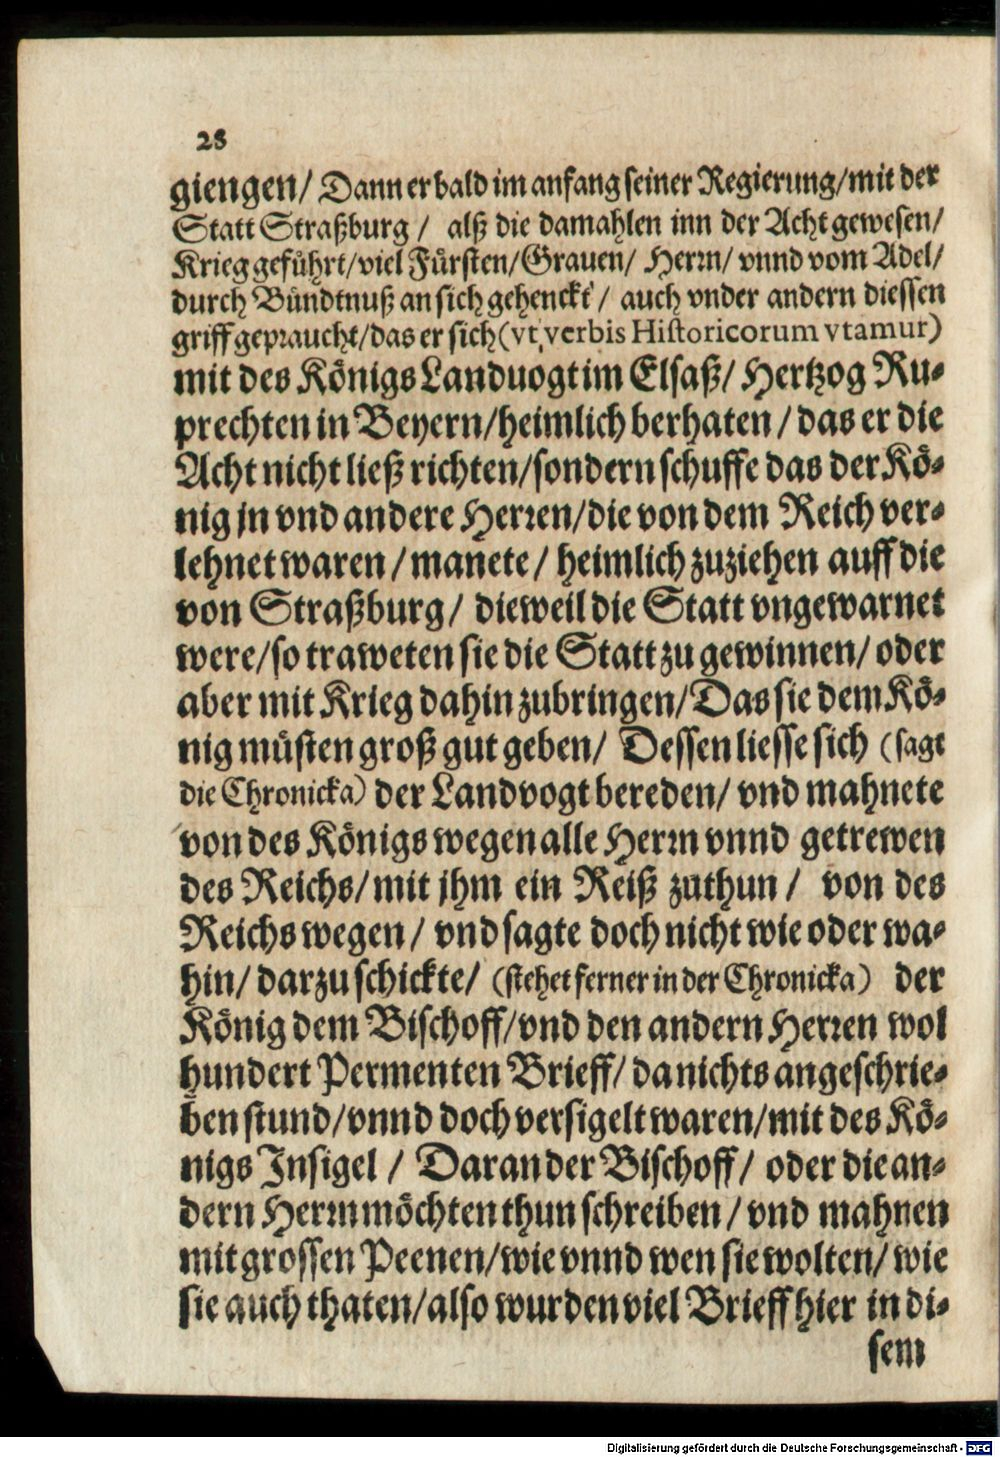 28
giengen/ Dann er bald im anfang seiner Regierung/mit der
Statt Straßburg / alß die damahlen inn der Acht gewesen/
Krieg geführt/viel Fürsten/Grauen/ Herrn/ vnnd vom Adel/
durch Bündtnuß an sich gehenckt / auch vnder andern diessen
griff gepraucht/das er sich (vt verbis Historicorum vtamur)
mit des Königs Landuogt im Elsaß/ Hertzog Ru-
prechten in Beyern/heimlich berhaten / das er die
Acht nicht ließ richten/sondern schuffe das der Kö-
nig jn vnd andere Herren/die von dem Reich ver-
lehnet waren / manete / heimlich zuziehen auff die
von Straßburg/ dieweil die Statt vngewarnet
were/so traweten sie die Statt zu gewinnen/ oder
aber mit Krieg dahin zubringen/Das sie dem Kö-
nig müsten groß gut geben/ Dessen liesse sich (sagt
die Chronicka) der Landvogt bereden/ vnd mahnete
von des Königs wegen alle Herrn vnnd getrewen
des Reichs/mit jhm ein Reiß zuthun / von des
Reichs wegen / vnd sagte doch nicht wie oder wa-
hin/ darzu schickte/ (stehet ferner in der Chronicka) der
König dem Bischoff/vnd den andern Herren wol
hundert Permenten Brieff/ da nichts angeschrie-
ben stund/vnnd doch versigelt waren/mit des Kö-
nigs Insigel / Daran der Bischoff/ oder die an-
dern Herrn möchten thun schreiben / vnd mahnen
mit grossen Peenen/wie vnnd wen sie wolten/ wie
sie auch thaten/also wurden viel Brieff hier in di-
sem
Digitalisierung gefördert durch die Deutsche Forschungsgemeinschaft - DFG